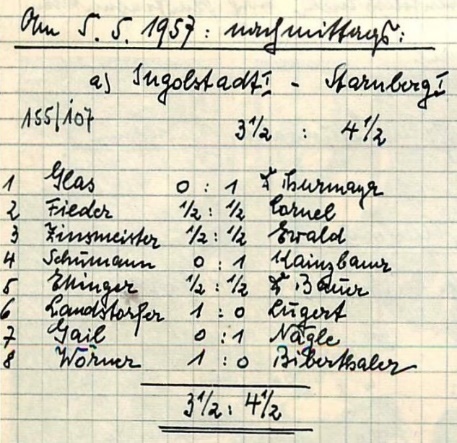 Am 5. 5. 1957: nachmittags:
a) Ingolstadt I - Starnberg I
155/107 3 1/2 : 4 1/2
1 Glas 0 : 1 Thurmayr
2 Fieder 1/2 : 1/2 Cornel
3 Zinsmeister 1/2 : 1/2 Ewald
4 Schumann 0 : 1 Hainzbauer
5 Ettinger 1/2 : 1/2 Bauer
6 Landstorfer 1 : 0 Lugert
7 Gail 0 : 1 Nägle
8 Wörner 1 : 0 Biberthaler
3 1/2 : 4 1/2